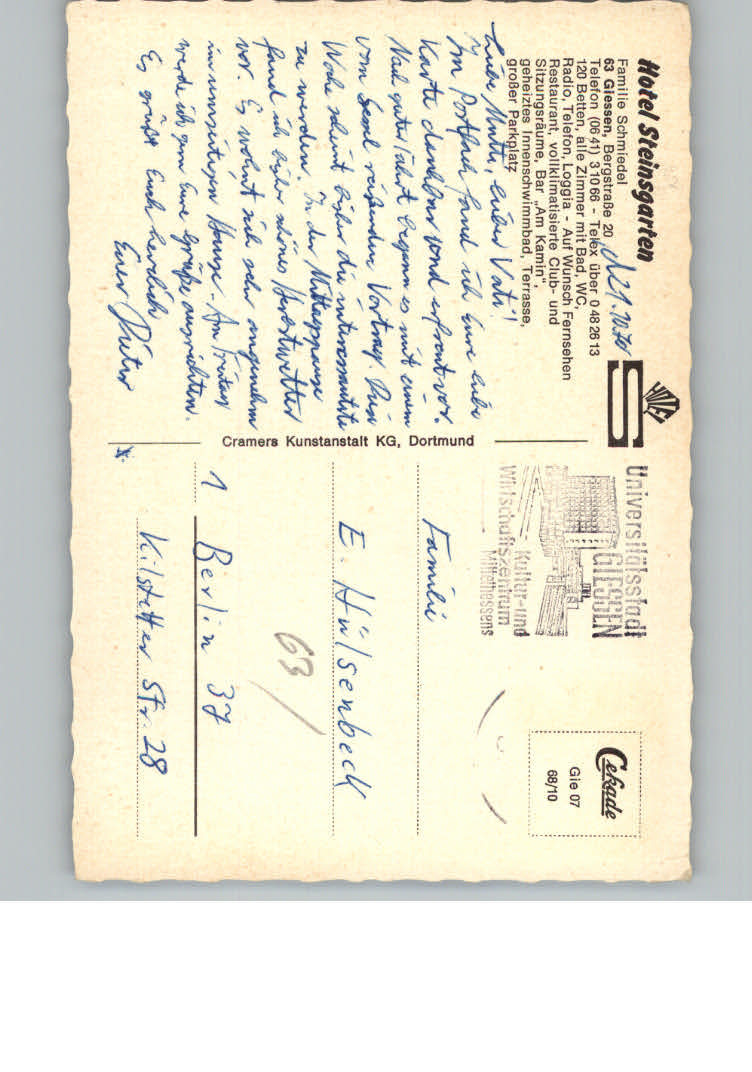 Hotel Steinsgarten
Familie Schmiedel
63 Giessen, Bergstraße 20
Telefon (06 41) 3 10 66 - Telex über 0 48 26 13
120 Betten, alle Zimmer mit Bad, WC,
Radio, Telefon, Loggia - Auf Wunsch Fernsehen
Restaurant, vollklimatisierte Club- und
Sitzungsräume, Bar „Am Kamin",
geheiztes Innenschwimmbad, Terrasse,
großer Parkplatz
HOTEL
S
d. 21.10.70
Liebe Mutti, lieber Vati!
Im Postfach fand ich Eure liebe
Karte dankbar und erfreut vor.
Nach guter Fahrt begann es mit einem
vom Seoul reisenden Vortrag. Diese
Woche scheint bisher die interessanteste
zu werden. In der Mittagspause
fand ich bisher schönes Herbstwetter
vor. Es wohnt sich sehr angenehm
in unserem Hause. Am Freitag
werde ich gern Eure Grüße ausrichten.
Es grüßt Euch herzlich
Euer Dieter
Cramers Kunstanstalt KG, Dortmund
Universitätsstadt
GIESSEN
Kultur- und
Wirtschaftszentrum
Mittelhessens
Cekade
Gie 07
68/10
Familie
E. Hülsenbeck
63
1 Berlin 37
Kilstetter Str. 28